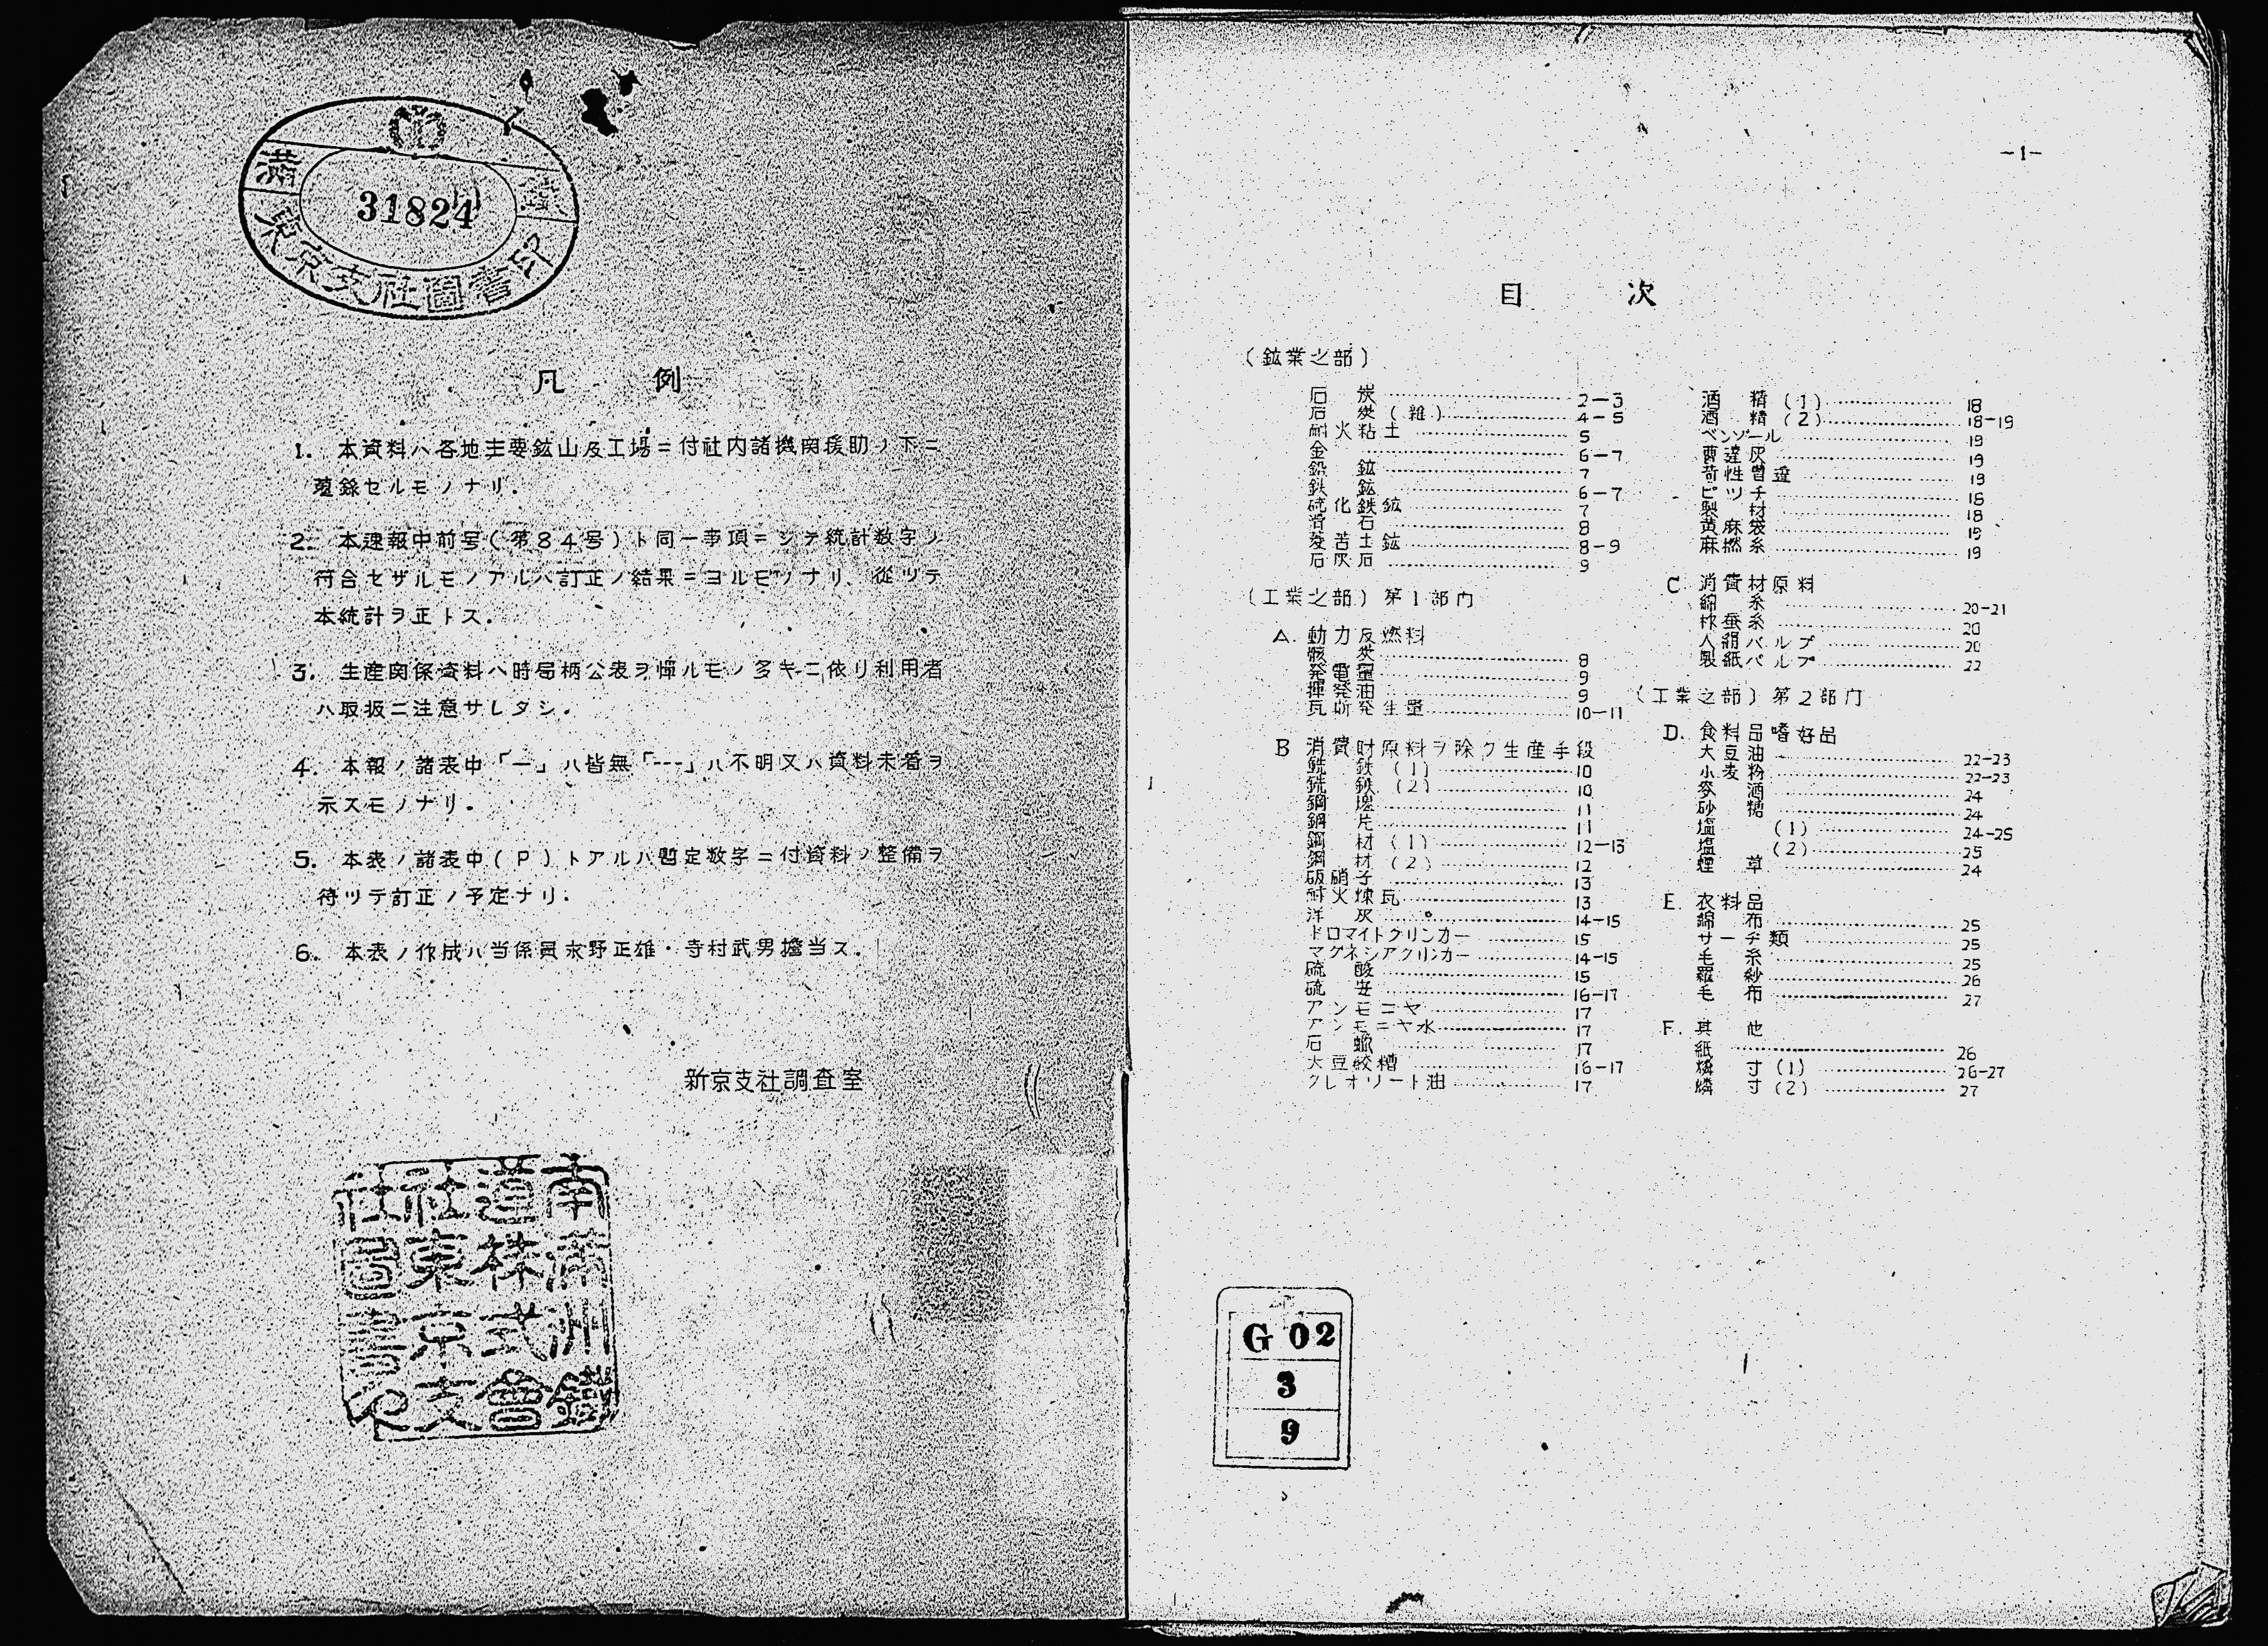 満鐵
東京支社圖書印
31824
凡 例
1. 本資料ハ各地主要鉱山及工場ニ付社内諸機関援助ノ下ニ
蒐録セルモノナリ.
2. 本速報中前号(第84号)ト同一事項ニシテ統計数字ノ
符合セザルモノアルハ訂正ノ結果ニヨルモノナリ、従ツテ
本統計ヲ正トス.
3. 生産関係資料ハ時局柄公表ヲ憚ルモノ多キニ依リ利用者
ハ取扱ニ注意サレタシ.
4. 本報ノ諸表中「—」ハ皆無「---」ハ不明又ハ資料未着ヲ
示スモノナリ.
5. 本表ノ諸表中(P)トアルハ暫定数字ニ付資料ノ整備ヲ
待ツテ訂正ノ予定ナリ.
6. 本表ノ作成ハ当係員永野正雄・寺村武男擔当ス.
新京支社調査室
南満洲鐵
道株式會
社東京支
社圖書之
-1-
目 次
(鉱業之部)
石炭 2-3
石炭(雑) 4-5
耐火粘土 5
金 6-7
鉛鉱 7
鉄鉱 6-7
硫化鉄鉱 7
滑石 8
菱苦土鉱 8-9
石灰石 9
(工業之部) 第1部门
A. 動力及燃料
骸炭 8
発電量 9
揮発油 9
瓦斯発生量 10-11
B 消費財原料ヲ除ク生産手段
銑鉄(1) 10
銑鉄(2) 10
鋼塊 11
鋼片 11
鋼材(1) 12-13
鋼材(2) 12
板硝子 13
耐火煉瓦 13
洋灰 14-15
ドロマイトクリンカー 15
マグネシアクリンカー 14-15
硫酸 15
硫安 16-17
アンモニヤ 17
アンモニヤ水 17
石蝋 17
大豆絞糟 16-17
クレオリート油 17
酒精(1) 18
酒精(2) 18-19
ベンゾール 19
曹達灰 19
苛性曹達 19
ピツチ 18
製材 18
黄麻袋 19
麻撚糸 19
C 消費材原料
綿糸 20-21
柞蚕糸 20
人絹パルプ 20
製紙パルプ 22
(工業之部) 第2部门
D. 食料品嗜好品
大豆油 22-23
小麦粉 22-23
麥酒 24
砂糖 24
塩(1) 24-25
塩(2) 25
煙草 24
E. 衣料品
綿布 25
サーヂ類 25
毛糸 25
羅紗 26
毛布 27
F. 其他
紙 26
燐寸(1) 26-27
燐寸(2) 27
G 02
3
9